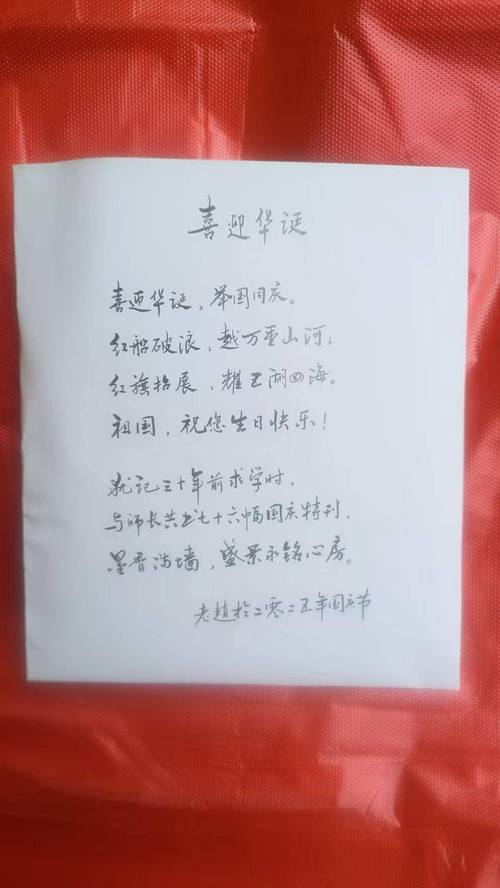 喜迎华诞
喜迎华诞，举国同庆。
红船破浪，越万重山河；
红旗招展，耀五湖四海。
祖国，祝您生日快乐！
犹记三十年前求学时，
与师长共书七十六幅国庆特刊，
墨香满墙，盛景永铭心房。
老赵於二零二五年国庆节